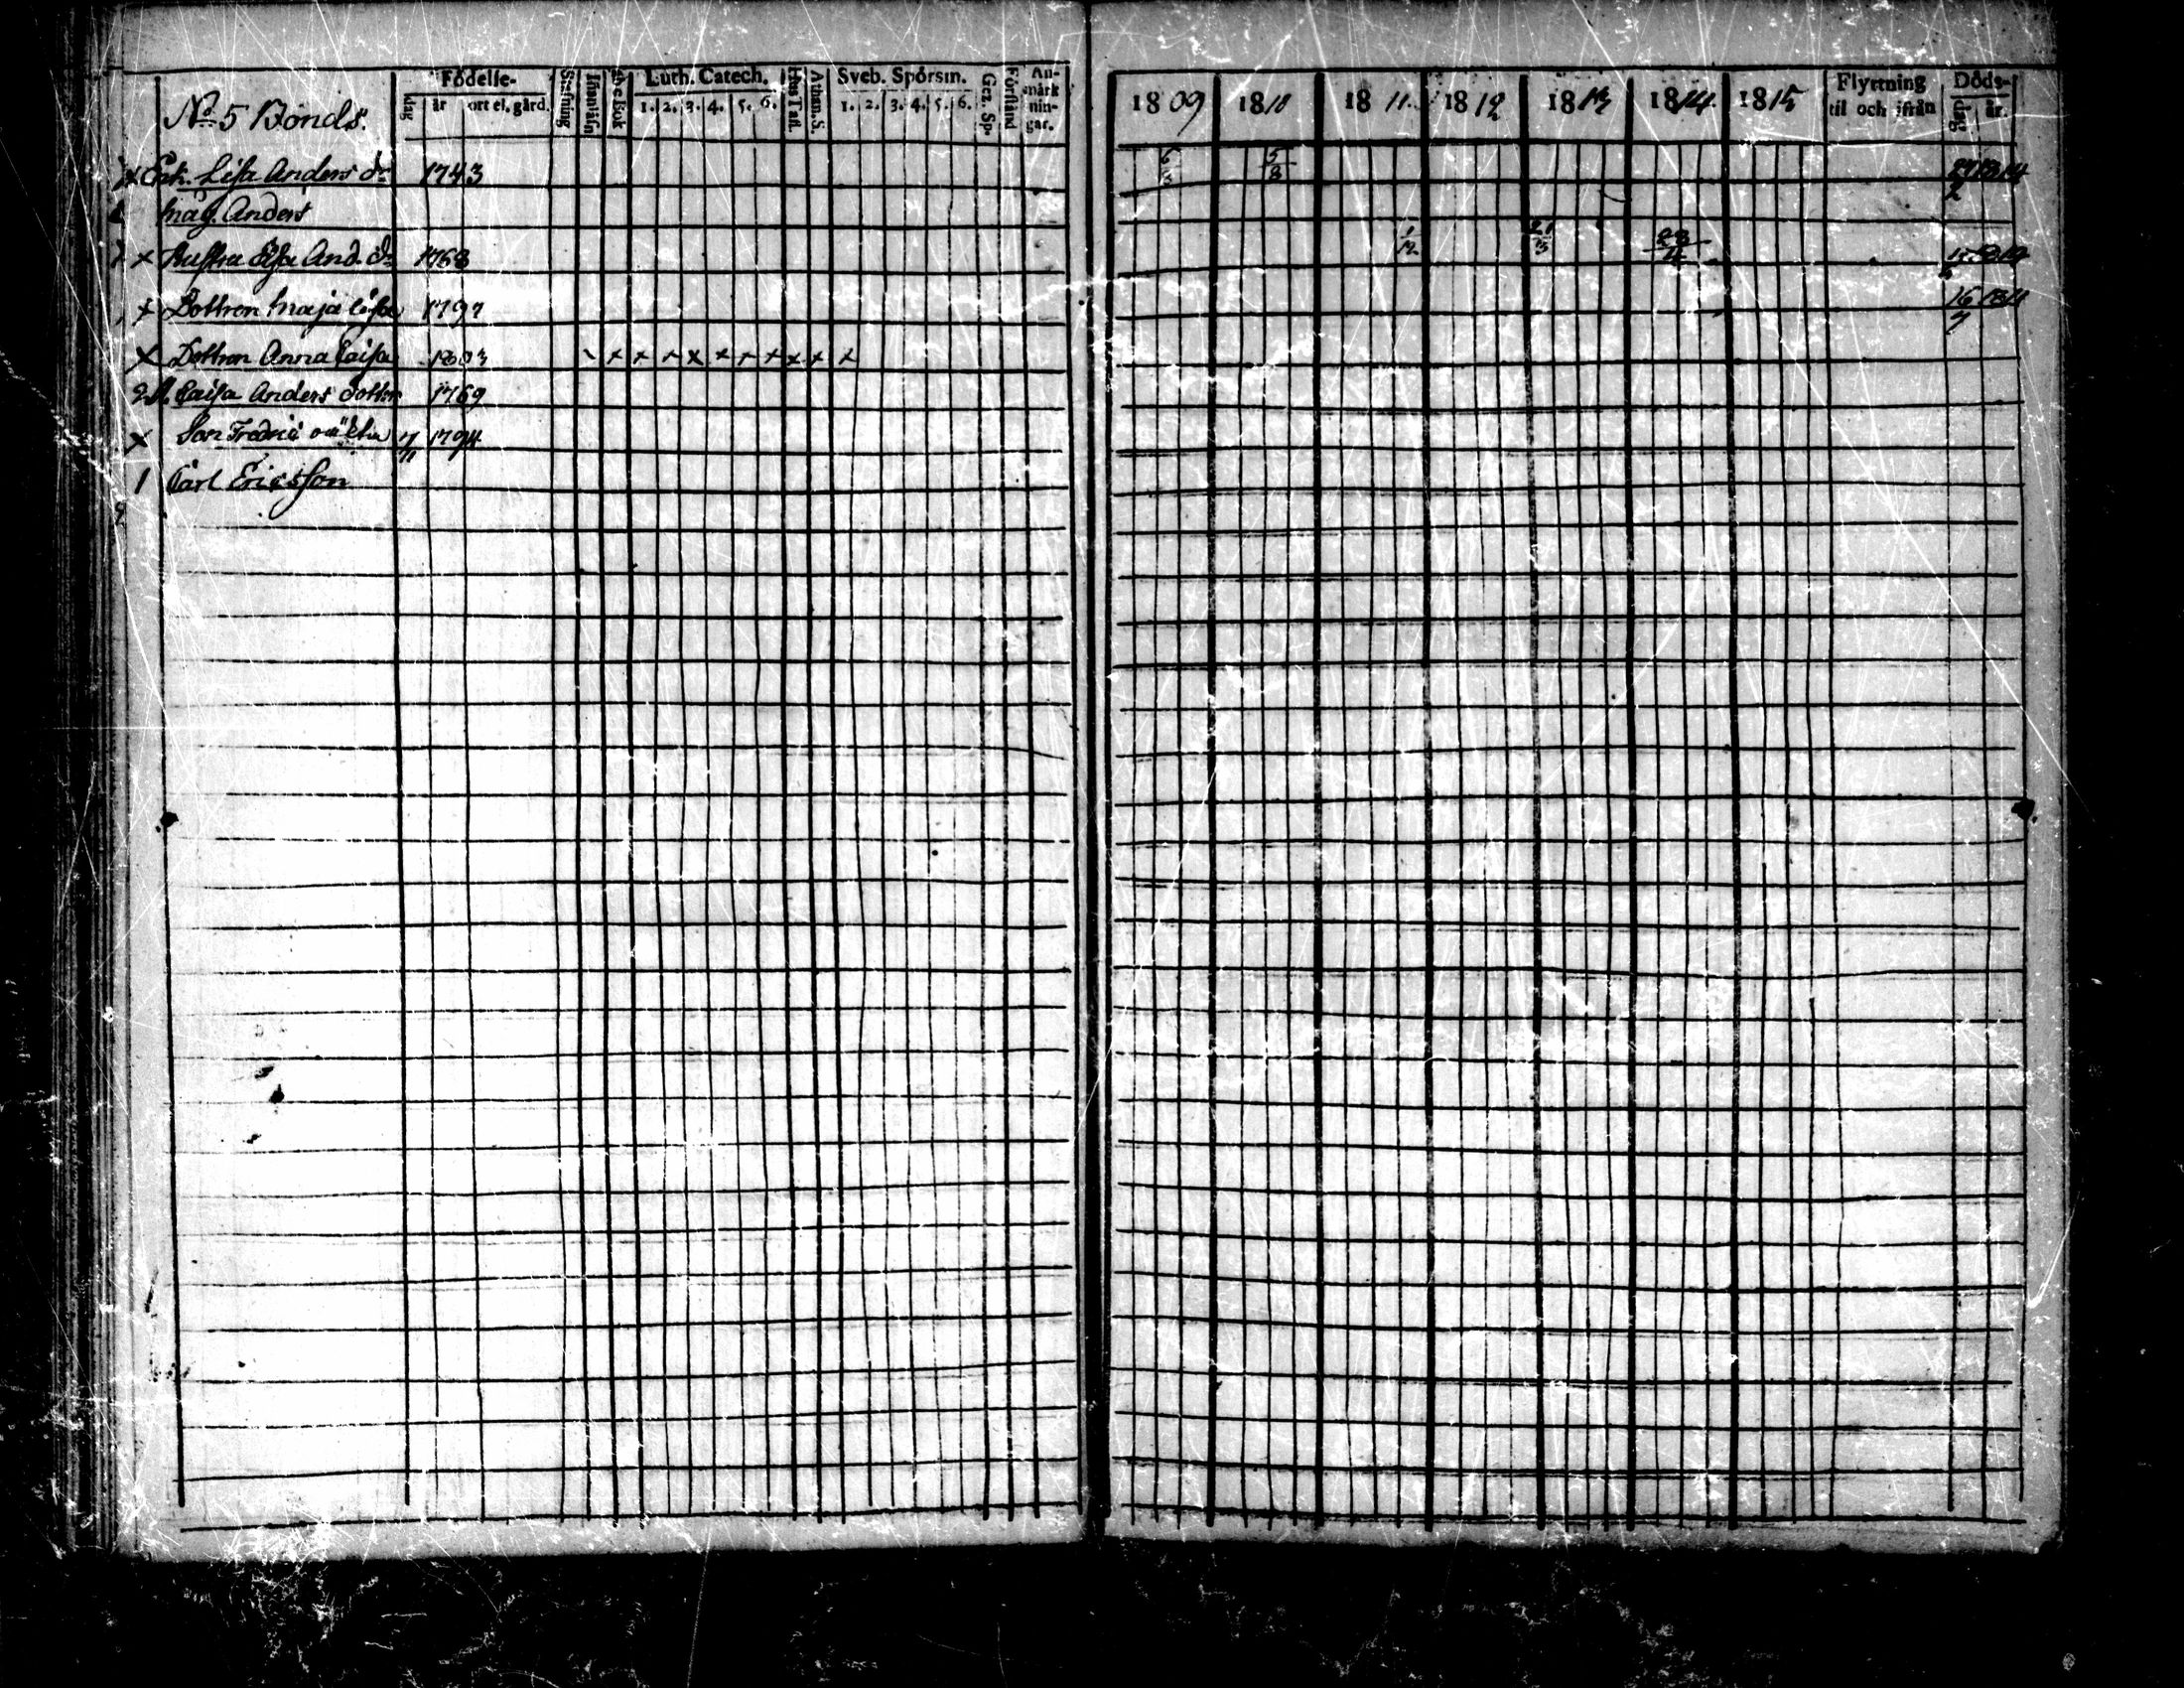 No 5 Bonds.
Födelse-
dag år ort el. gård.
Stafning
Innanläsn
Abc Bok
Luth. Catech.
1. 2. 3. 4. 5. 6.
Hus Tafl.
Athan. S.
Sveb. Spörsm.
1. 2. 3. 4. 5. 6.
Gez. Sp.
Förstånd
An-
märk
nin-
gar.
1809 1810 1811. 1812 1813 1814 1815
Flyttning
til och ifrån
Döds-
dag år.
x Enk. Lisa Anders dr 1743 6/3 5/3 27/2 1814
Måg. Anders
x Hustru Lisa And. dr 1768 1/12 21/3 23/4
x Dottren Maja Cajsa 1797 16/7
x Dottren Anna Caisa 1803 x x x x x x x x x x
Caisa Anders dotter 1769
x Son Fredric 1794
1 Carl Ericsson